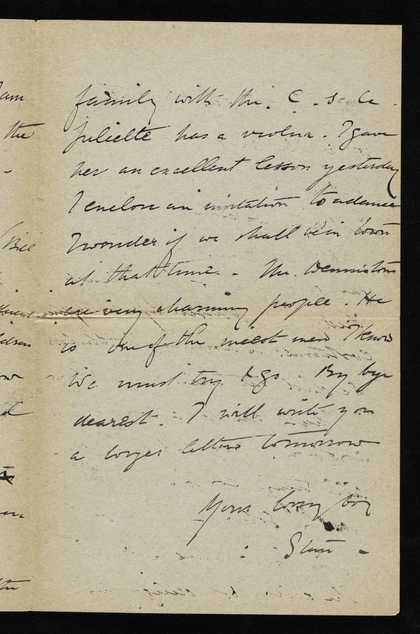 family with the. C. scale.
Juliette has a violin. I gave
her an excellent lesson yesterday
I enclose an invitation to a dance
I wonder if we shall be in town
at that time. The Dennistons
are very charming people. He
is one of the nicest men I know
We must try & go. By bye
dearest. I will write you
a longer letter tomorrow
Your boy
am
the
Bill